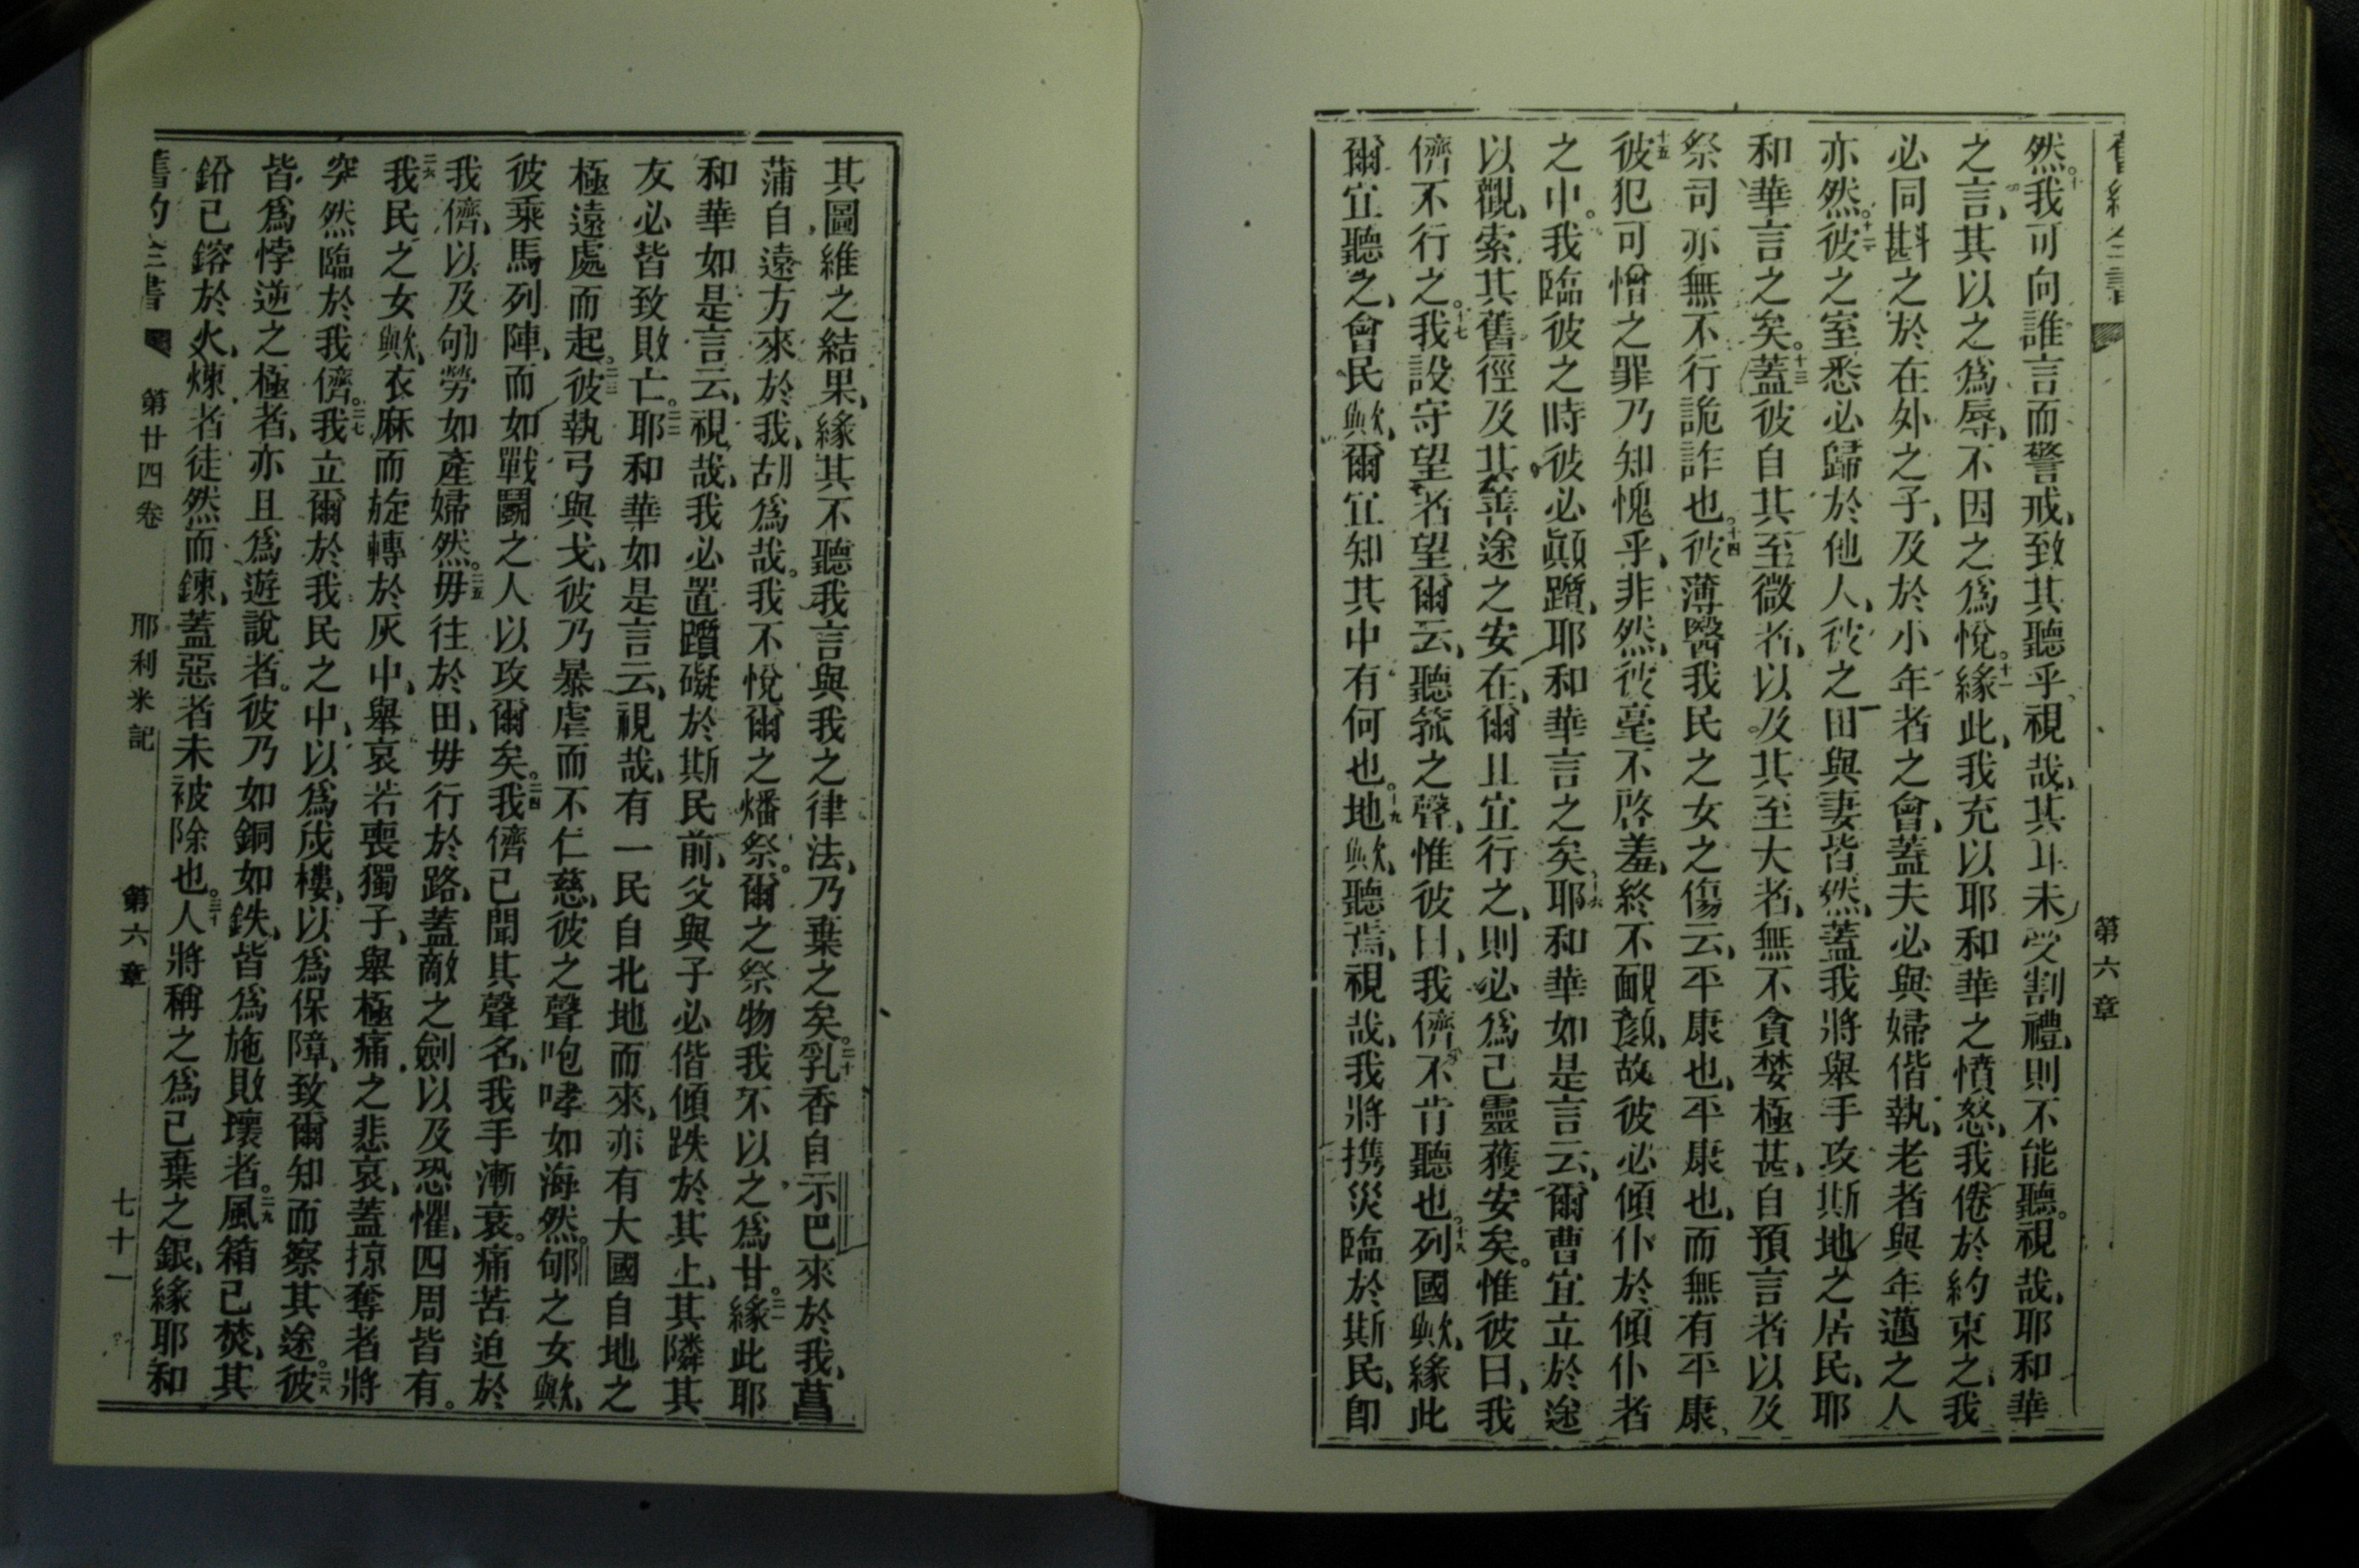 第六章
然。十我可向誰言而警戒、致其聽乎、視哉、其耳未受割禮、則不能聽。視哉、耶和華
之言、其以之爲辱、不因之爲悅。十一緣此、我充以耶和華之憤怒、我倦於約束之、我
必同斟之於在外之子、及於小年者之會、蓋夫必與婦偕執、老者與年邁之人
亦然。十二彼之室悉必歸於他人、彼之田與妻皆然、蓋我將舉手攻斯地之居民、耶
和華言之矣。十三蓋彼自其至微者、以及其至大者、無不貪婪極甚、自預言者以及
祭司亦無不行詭詐也。十四彼薄醫我民之女之傷云、平康也、平康也、而無有平康、
十五彼犯可憎之罪乃知愧乎、非然、彼毫不啓羞、終不靦顏、故彼必傾仆於傾仆者
之中。我臨彼之時彼必顚躓、耶和華言之矣、十六耶和華如是言云、爾曹宜立於途
以觀、索其舊徑及其善途之安在、爾且宜行之、則必爲己靈獲安矣。惟彼曰、我
儕不行之。十七我設守望者望爾云、聽箛之聲、惟彼曰、我儕不肯聽也。十八列國歟、緣此
爾宜聽之、會民歟、爾宜知其中有何也。十九地歟、聽焉、視哉、我將携災臨於斯民、卽
其圖維之結果、緣其不聽我言與我之律法、乃棄之矣。二十乳香自示巴來於我、菖
蒲自遠方來於我、胡爲哉。我不悅爾之燔祭。爾之祭物我不以之爲甘。二一緣此耶
和華如是言云、視哉、我必置躓礙於斯民前、父與子必偕傾跌於其上、其隣其
友必皆致敗亡。二二耶和華如是言云、視哉、有一民自北地而來、亦有大國自地之
極遠處而起。二三彼執弓與戈、彼乃暴虐而不仁慈、彼之聲咆哮如海然。郇之女歟、
彼乘馬列陣、而如戰鬬之人以攻爾矣。二四我儕已聞其聲名、我手漸衰。痛苦迫於
我儕、以及劬勞如產婦然。二五毋往於田、毋行於路、蓋敵之劍以及恐懼、四周皆有。
二六我民之女歟、衣麻而旋轉於灰中、舉哀若喪獨子、舉極痛之悲哀、蓋掠奪者將
突然臨於我儕。二七我立爾於我民之中、以爲戍樓、以爲保障、致爾知而察其途。二八彼
皆爲悖逆之極者、亦且爲遊說者。彼乃如銅如鉄、皆爲施敗壞者。二九風箱已焚、其
鉛已鎔於火、煉者徒然而鍊、蓋惡者未被除也。三十人將稱之爲已棄之銀、緣耶和
舊約全書 第廿四卷 耶利米記 第六章 七十一